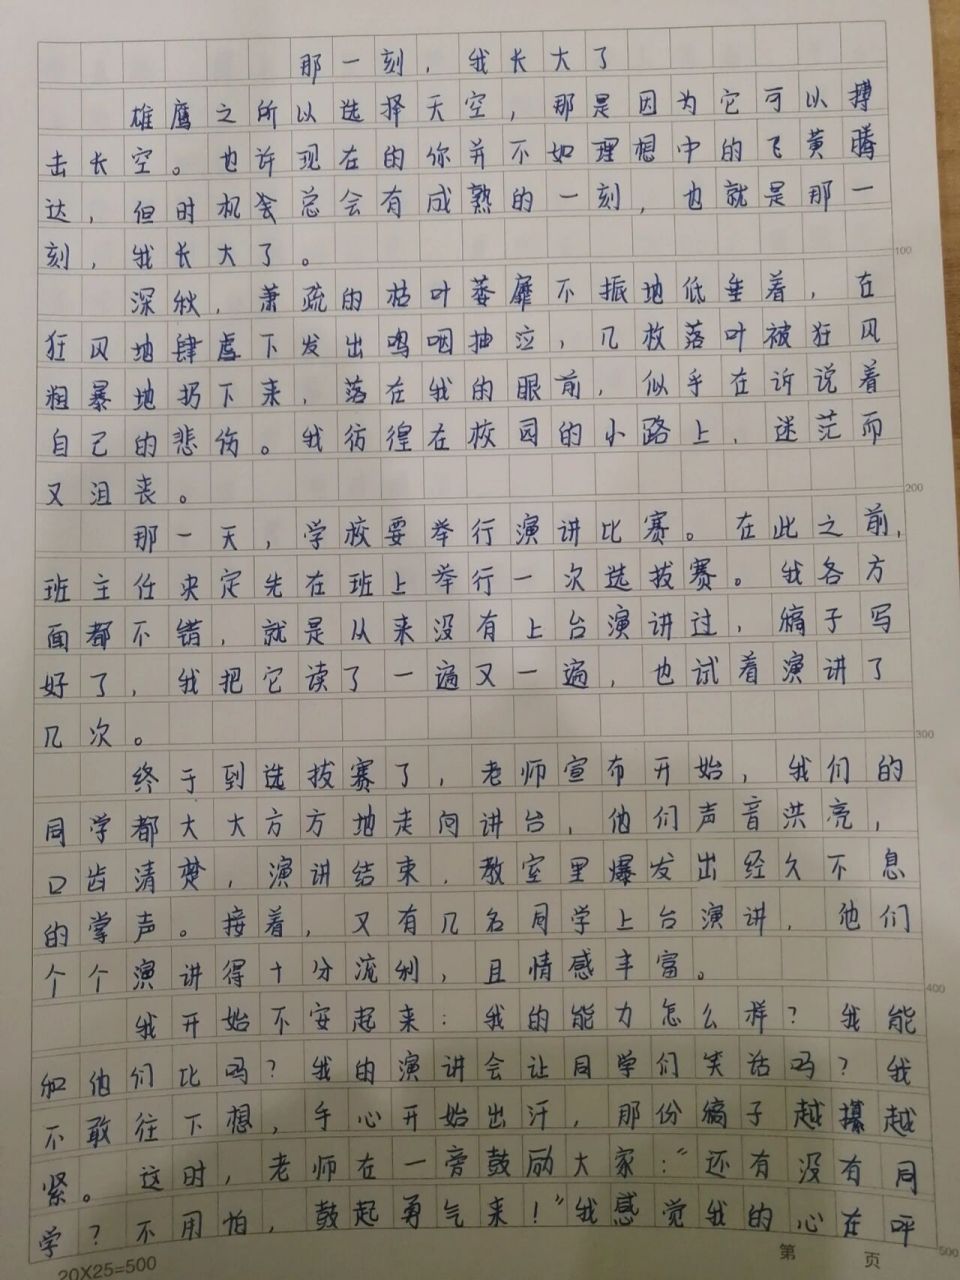 那一刻，我长大了
雄鹰之所以选择天空，那是因为它可以搏
击长空。也许现在的你并不如理想中的飞黄腾
达，但时机会总会有成熟的一刻，也就是那一
刻，我长大了。
100
深秋，萧疏的枯叶萎靡不振地低垂着，在
狂风地肆虐下发出呜咽抽泣，几枚落叶被狂风
粗暴地扔下来，落在我的眼前，似乎在诉说着
自己的悲伤。我彷徨在校园的小路上，迷茫而
又沮丧。
200
那一天，学校要举行演讲比赛。在此之前，
班主任决定先在班上举行一次选拔赛。我各方
面都不错，就是从来没有上台演讲过，稿子写
好了，我把它读了一遍又一遍，也试着演讲了
几次。
300
终于到选拔赛了，老师宣布开始，我们的
同学都大大方方地走向讲台，他们声音洪亮，
口齿清楚，演讲结束，教室里爆发出经久不息
的掌声。接着，又有几名同学上台演讲，他们
个个演讲得十分流利，且情感丰富。
400
我开始不安起来：我的能力怎么样？我能
和他们比吗？我的演讲会让同学们笑话吗？我
不敢往下想，手心开始出汗，那份稿子越攥越
紧。这时，老师在一旁鼓励大家：“还有没有同
学？不用怕，鼓起勇气来！”我感觉我的心在呼
500
20X25=500
第 页